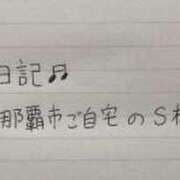 日記♬
那覇市ご自宅のS